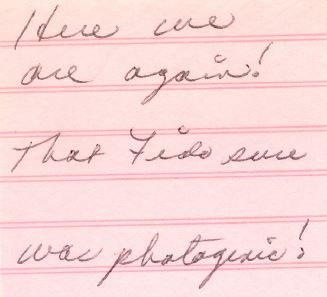 Here we
are again!
That Fido sure
was photogenic!